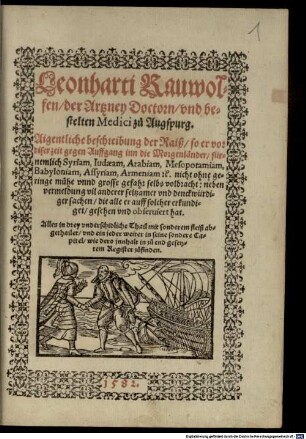 1
Leonharti Rauwol-
fen/ der Artzney Doctorn/ vnd be-
stelten Medici zů Augspurg.
Aigentliche beschreibung der Raiß/ so er vor
diser zeit gegen Auffgang inn die Morgenländer/ für-
nemlich Syriam, Iudæam, Arabiam, Mesopotamiam,
Babyloniam, Assyriam, Armeniam ꝛc. nicht ohne ge-
ringe mühe vnnd grosse gefahr selbs volbracht: neben
vermeldung vil anderer seltzamer vnd denckwürdi-
ger sachen/ die alle er auff solcher erkundi-
get/ gesehen vnd obseruiert hat.
Alles in drey vnderschidliche Thail mit sonderem fleiß ab-
gethailet/ vnd ein jeder weiter in seine sondere Ca-
pitel/ wie dero jnnhalt in zů end gesetz-
tem Register zůfinden.
1582.